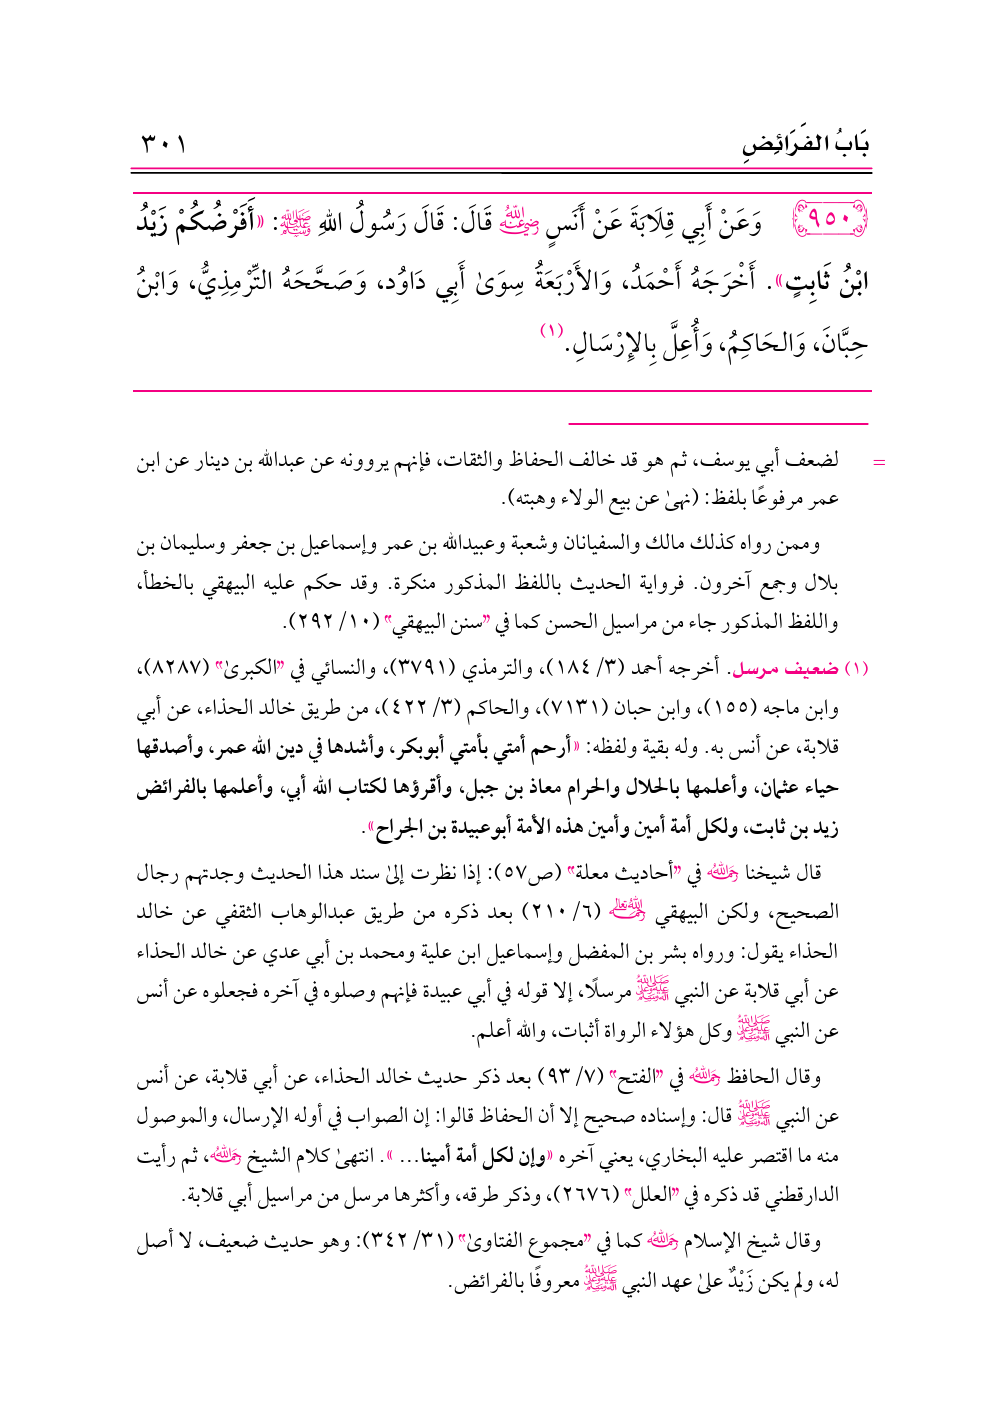 بَابُ الفَرَائِضِ ٣٠١
٩٥٠ وَعَنْ أَبِي قِلَابَةَ عَنْ أَنَسٍ رضي الله عنه قَالَ: قَالَ رَسُولُ اللهِ ﷺ: «أَفْرَضُكُمْ زَيْدُ
ابْنُ ثَابِتٍ». أَخْرَجَهُ أَحْمَدُ، وَالأَرْبَعَةُ سِوَىٰ أَبِي دَاوُد، وَصَحَّحَهُ التِّرْمِذِيُّ، وَابْنُ
حِبَّانَ، وَالحَاكِمُ، وَأُعِلَّ بِالإِرْسَالِ.(١)
= لضعف أبي يوسف، ثم هو قد خالف الحفاظ والثقات، فإنهم يروونه عن عبدالله بن دينار عن ابن
عمر مرفوعًا بلفظ: (نهىٰ عن بيع الولاء وهبته).
وممن رواه كذلك مالك والسفيانان وشعبة وعبيدالله بن عمر وإسماعيل بن جعفر وسليمان بن
بلال وجمع آخرون. فرواية الحديث باللفظ المذكور منكرة. وقد حكم عليه البيهقي بالخطأ،
واللفظ المذكور جاء من مراسيل الحسن كما في "سنن البيهقي" (١٠/ ٢٩٢).
(١) ضعيف مرسل. أخرجه أحمد (٣/ ١٨٤)، والترمذي (٣٧٩١)، والنسائي في "الكبرىٰ" (٨٢٨٧)،
وابن ماجه (١٥٥)، وابن حبان (٧١٣١)، والحاكم (٣/ ٤٢٢)، من طريق خالد الحذاء، عن أبي
قلابة، عن أنس به. وله بقية ولفظه: «أرحم أمتي بأمتي أبوبكر، وأشدها في دين الله عمر، وأصدقها
حياء عثمان، وأعلمها بالحلال والحرام معاذ بن جبل، وأقرؤها لكتاب الله أبي، وأعلمها بالفرائض
زيد بن ثابت، ولكل أمة أمين وأمين هذه الأمة أبوعبيدة بن الجراح».
قال شيخنا رحمه الله في "أحاديث معلة" (ص٥٧): إذا نظرت إلىٰ سند هذا الحديث وجدتهم رجال
الصحيح، ولكن البيهقي رحمه الله تعالى (٦/ ٢١٠) بعد ذكره من طريق عبدالوهاب الثقفي عن خالد
الحذاء يقول: ورواه بشر بن المفضل وإسماعيل ابن علية ومحمد بن أبي عدي عن خالد الحذاء
عن أبي قلابة عن النبي ﷺ مرسلًا، إلا قوله في أبي عبيدة فإنهم وصلوه في آخره فجعلوه عن أنس
عن النبي ﷺ وكل هؤلاء الرواة أثبات، والله أعلم.
وقال الحافظ رحمه الله في "الفتح" (٧/ ٩٣) بعد ذكر حديث خالد الحذاء، عن أبي قلابة، عن أنس
عن النبي ﷺ قال: وإسناده صحيح إلا أن الحفاظ قالوا: إن الصواب في أوله الإرسال، والموصول
منه ما اقتصر عليه البخاري، يعني آخره «وإن لكل أمة أمينا... ». انتهىٰ كلام الشيخ رحمه الله، ثم رأيت
الدارقطني قد ذكره في "العلل" (٢٦٧٦)، وذكر طرقه، وأكثرها مرسل من مراسيل أبي قلابة.
وقال شيخ الإسلام رحمه الله كما في "مجموع الفتاوىٰ" (٣١/ ٣٤٢): وهو حديث ضعيف، لا أصل
له، ولم يكن زَيْدٌ علىٰ عهد النبي ﷺ معروفًا بالفرائض.